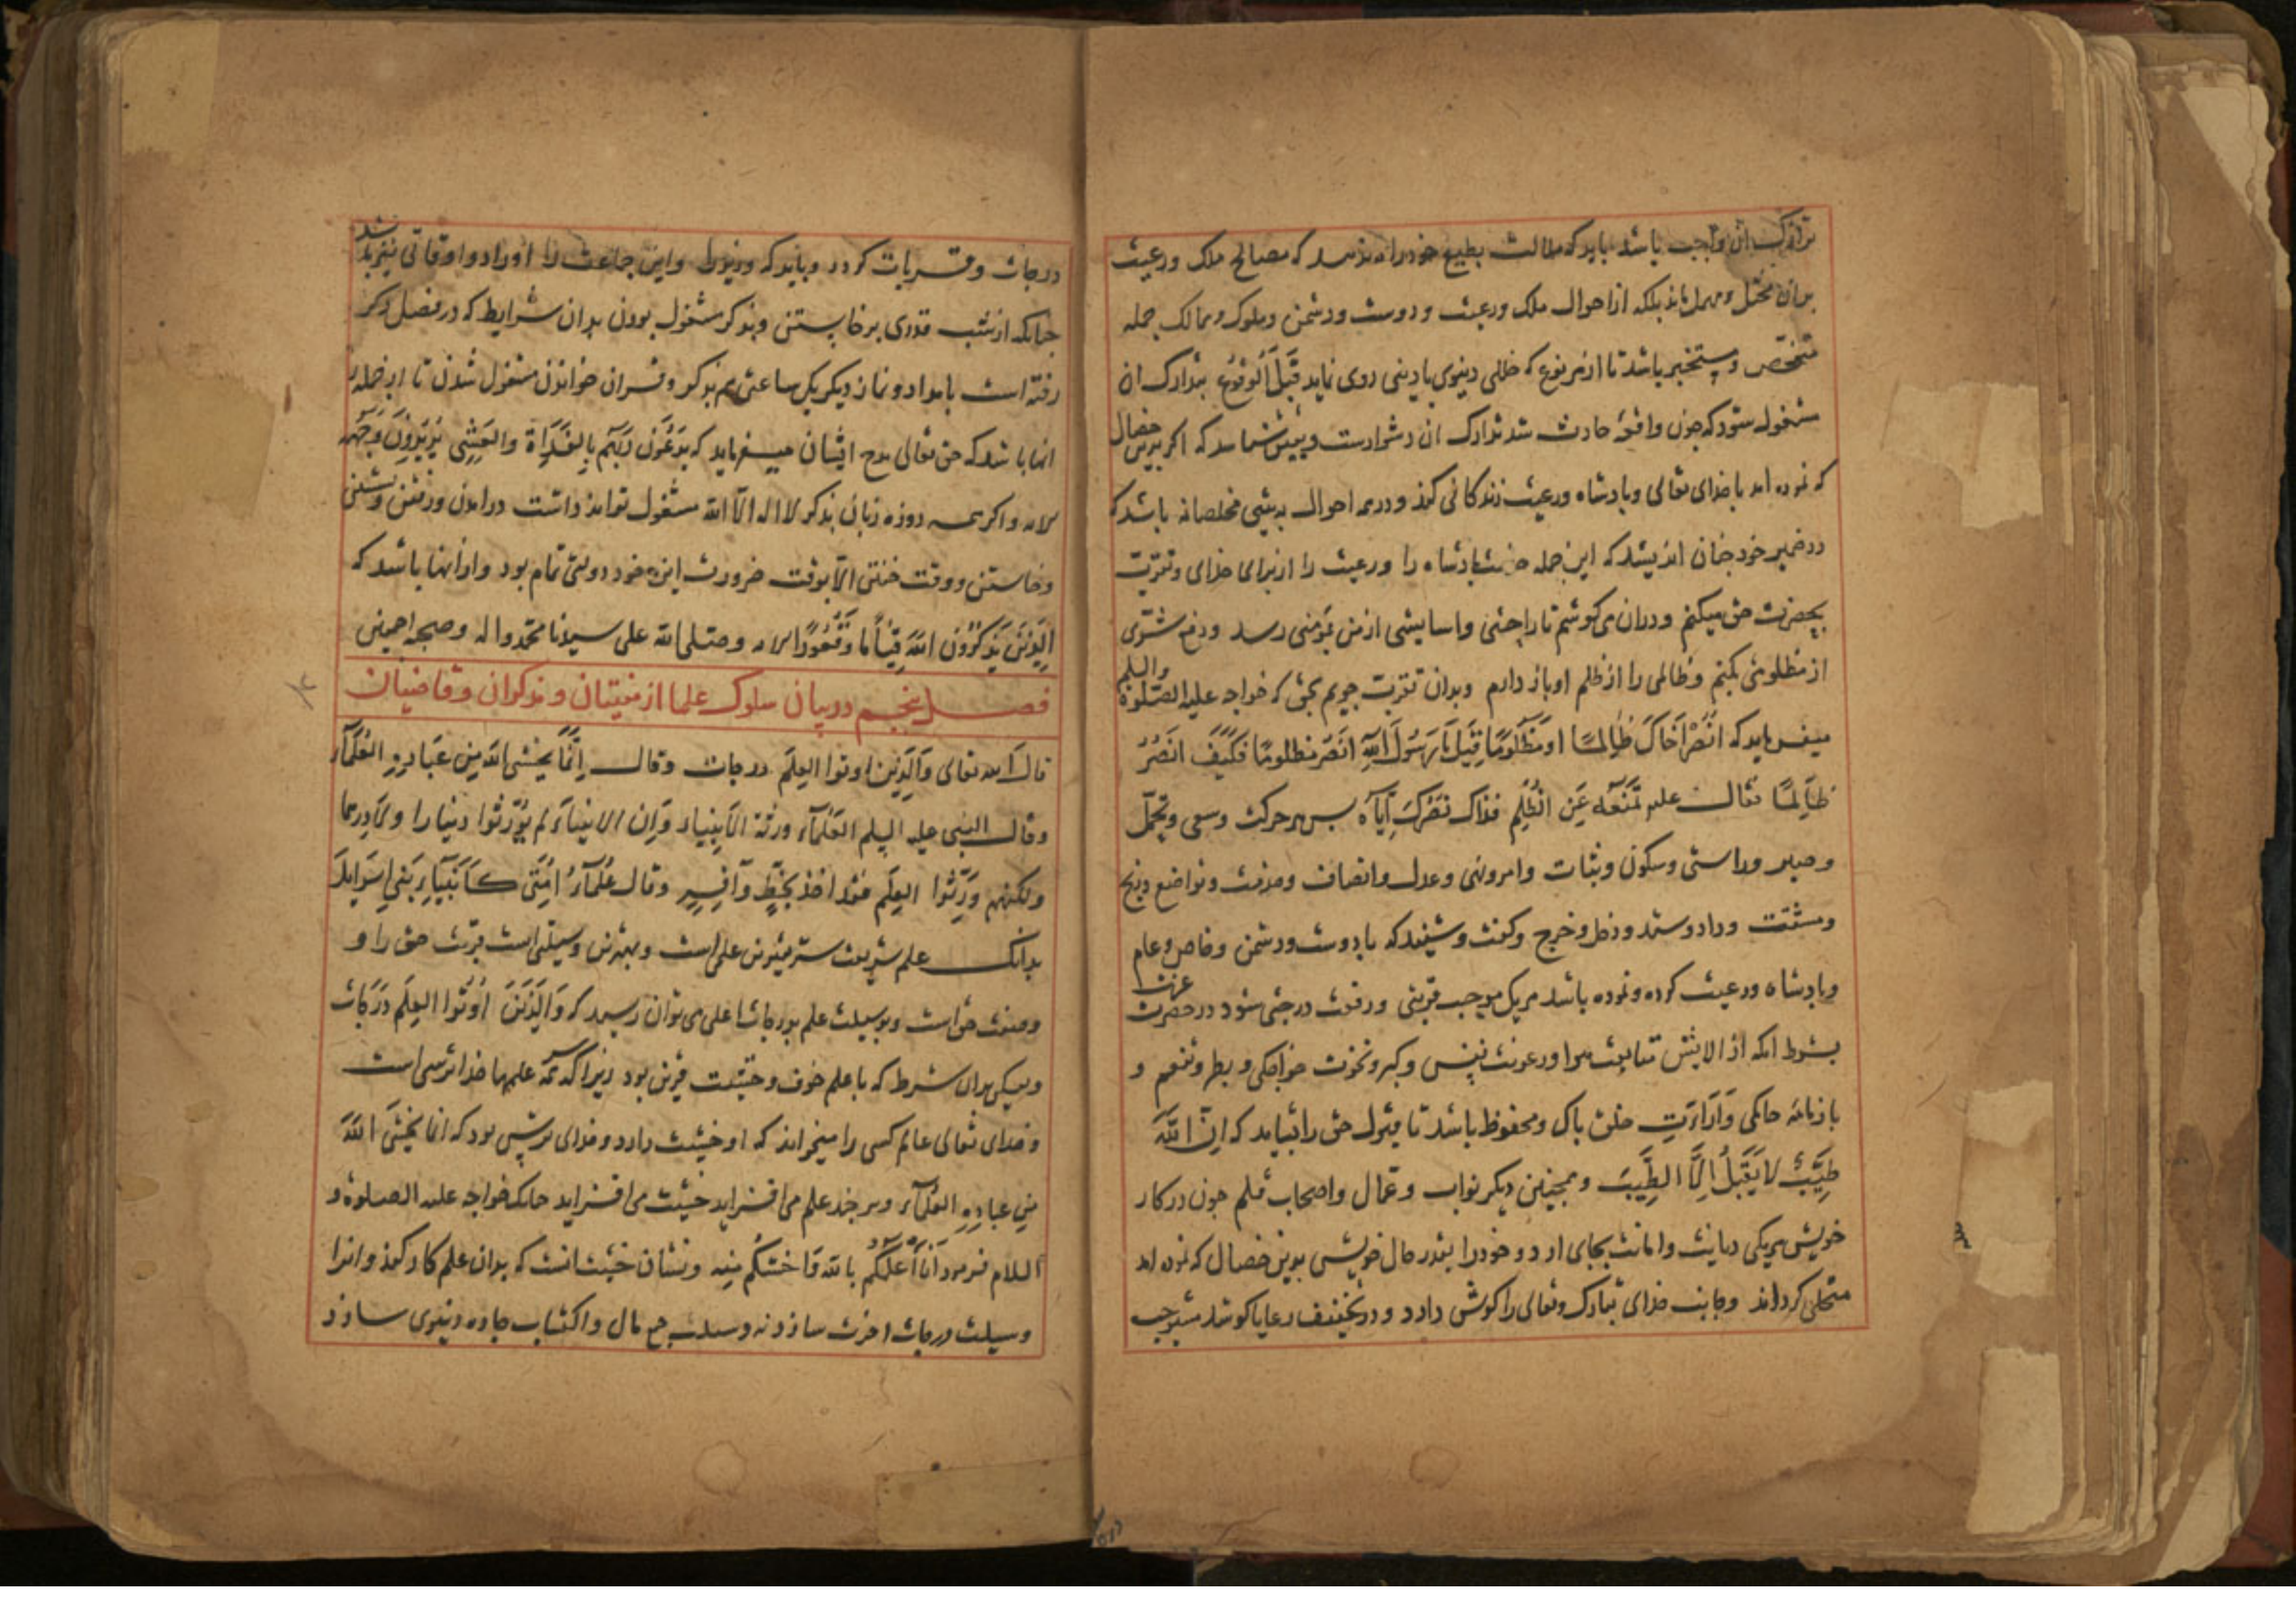 تدارک آن واجب باشد باید که ملالت بطبع خود راه ندهد که مصالح ملک و رعیت
بدان مختل و مهمل ماند بلکه از احوال ملک و رعیت و دوست و دشمن و ملوک و ممالک جمله
متفحص و مستخبر باشد تا از هر نوع که خللی دینوی یا دینی روی نماید قَبْلَ الْوُقُوع بتدارک آن
مشغول شود که چون واقعه حادث شد تدارک آن دشوار دست و پیش شما سد که اگر برین خصال
که نموده امد با خدای تعالی و پادشاه و رعیت زندکانی کند و در همه احوال به نیتی مخلصانه باشد که
در ضمیر خود جنان اندیشد که این جمله خدمت پادشاه را و رعیت را از برای خدای و تقرّب
بحضرت حق میکنم و دران می کوشم تا راحتی و اسایشی از من بمؤمنی رسد و دفع شرّی
از مظلومی بکنم و ظالمی را از ظلم او باز دارم و بدان تقرّب جویم بحق که خواجه علیه الصّلوة والسلم
میفرماید که اُنْصُرْ اَخَاكَ ظَالِمًا اَو مَظْلُومًا قِیلَ یَا رَسُولَ اللهِ اَنْصُرُ مظلومًا فَکَیْفَ اَنْصُرُ
ظَالِمًا فقال علیه تَمْنَعُه عَنِ الْظُّلْمِ فذاک نَصْرُكَ اِیَّاهُ بس هر حرکت و سعی و تحمّل
و صبر و راستی و سکون و ثبات و امر و نهی و عدل و انصاف و مذمت و تواضع و رنج
و مشقّت و داد و ستد و دخل و خرج و کفت و شنید که با دوست و دشمن و خاص و عام
و پادشاه و رعیت کرده و نموده باشد هر یک موجب قربتی و رفعت درجتی شود در حضرت عزت
بشرط انکه از الایش متابعت هوا و رعونت نفس و کبر و نخوت خواجکی و بطر و تنعم و
بازنامه حاکمی و اِدارتِ خلق پاک و محفوظ باشد تا قبول حق را شاید که اِنَّ اللهَ
طَیِّبٌ لا یَقْبَلُ اِلَّا الطَّیِّبَ و همجنین دیکر نواب و عمّال و اصحاب قلم جون در کار
خویش هر یکی دیانت و امانت بجای ارد و خود را بقدر حال خویش بدین خصال که نموده امد
متحلی کرداند و جانب خدای تبارک و تعالی را کوش دارد و در تخفیف رعایا کوشد مستوجب
درجات و قربات کردد و باید که وزیر را و این جماعت را اوراد و اوقاتی نیز باشد
جنانکه از شب قدری برخاستن و بذکر مشغول بودن بدان شرایط که در فصل ذکر
رفته است بامداد و نماز دیکر یک ساعتی هم بذکر و قران خواندن مشغول شدن تا از جمله
انها باشد که حق تعالی مدح ایشان میفرماید که یَدْعُونَ رَبَّهُم بِالْغَدَاةِ وَالعَشِیِّ یُرِیدُونَ وَجْهَهُ
الایه و اکر همه روزه زبان بذکر لا اله الّا الله مشغول تواند داشت در امدن و رفتن و نشستن
و خاستن و وقت خفتن الّا بوقت ضرورت این خود دولتی تمام بود و از انها باشد که
اَلَّذِینَ یَذْکُرُونَ اللهَ قِیَاماً وَقُعُودًا الایه و صلی الله علی سیدنا محمّد واله و صحبه اجمعین
فصل پنجم در بیان سلوک علما از مفتیان و مذکران و قاضیان
قالَ الله تعالی وَالَّذِینَ اوتوا العِلْمَ درجات وقال اِنَّمَا یَخْشَی اللهَ مِن عِبَادِهِ العُلَمَآءُ
وقال النبی علیه السلم العُلَمَآءُ ورثة الاَنْبِیَاء وَاِنَّ الانبیاءَ لم یُوَرِّثُوا دینارا ولا دِرهما
ولکنهم وَرَّثُوا العِلْمَ فمَنْ اخذ بحظٍّ وَافِرٍ وقال عُلَمَآءُ اُمَّتِی کَاَنْبِیَآءِ بَنِی اِسْرَایِلَ
بدانک علم شریفت شریفترین علی است و بهترین وسیلتی است قربت حق را و
و صفت حق است و بوسیلت علم بدرجات اعلی می توان رسید که وَالَّذِینَ اُوتُوا العِلْمَ دَرَجَاتٍ
ولیکن بدان شرط که با علم خوف و خشیت قرین بود زیرا که سرهمه علمها خدا ترسی است
و خدای تعالی عالم کسی را میخواند که او خشیت دارد و خدای ترس بود که انما یَخْشَی اللهَ
مِن عبادِهِ العُلَمَآءُ و هر جند علم می افزاید خشیت می افزاید جنانکه خواجه علیه الصلوة و
السلام فرمود اَنَا اَعْلَمُکُم بالله وَاَخْشَکُم مِنه و نشان خشیت انست که بدان علم کار کند و انرا
وسیلت درجات اخرت سازد نه وسیلت جمع مال و اکتساب جاه دنیوی سازد